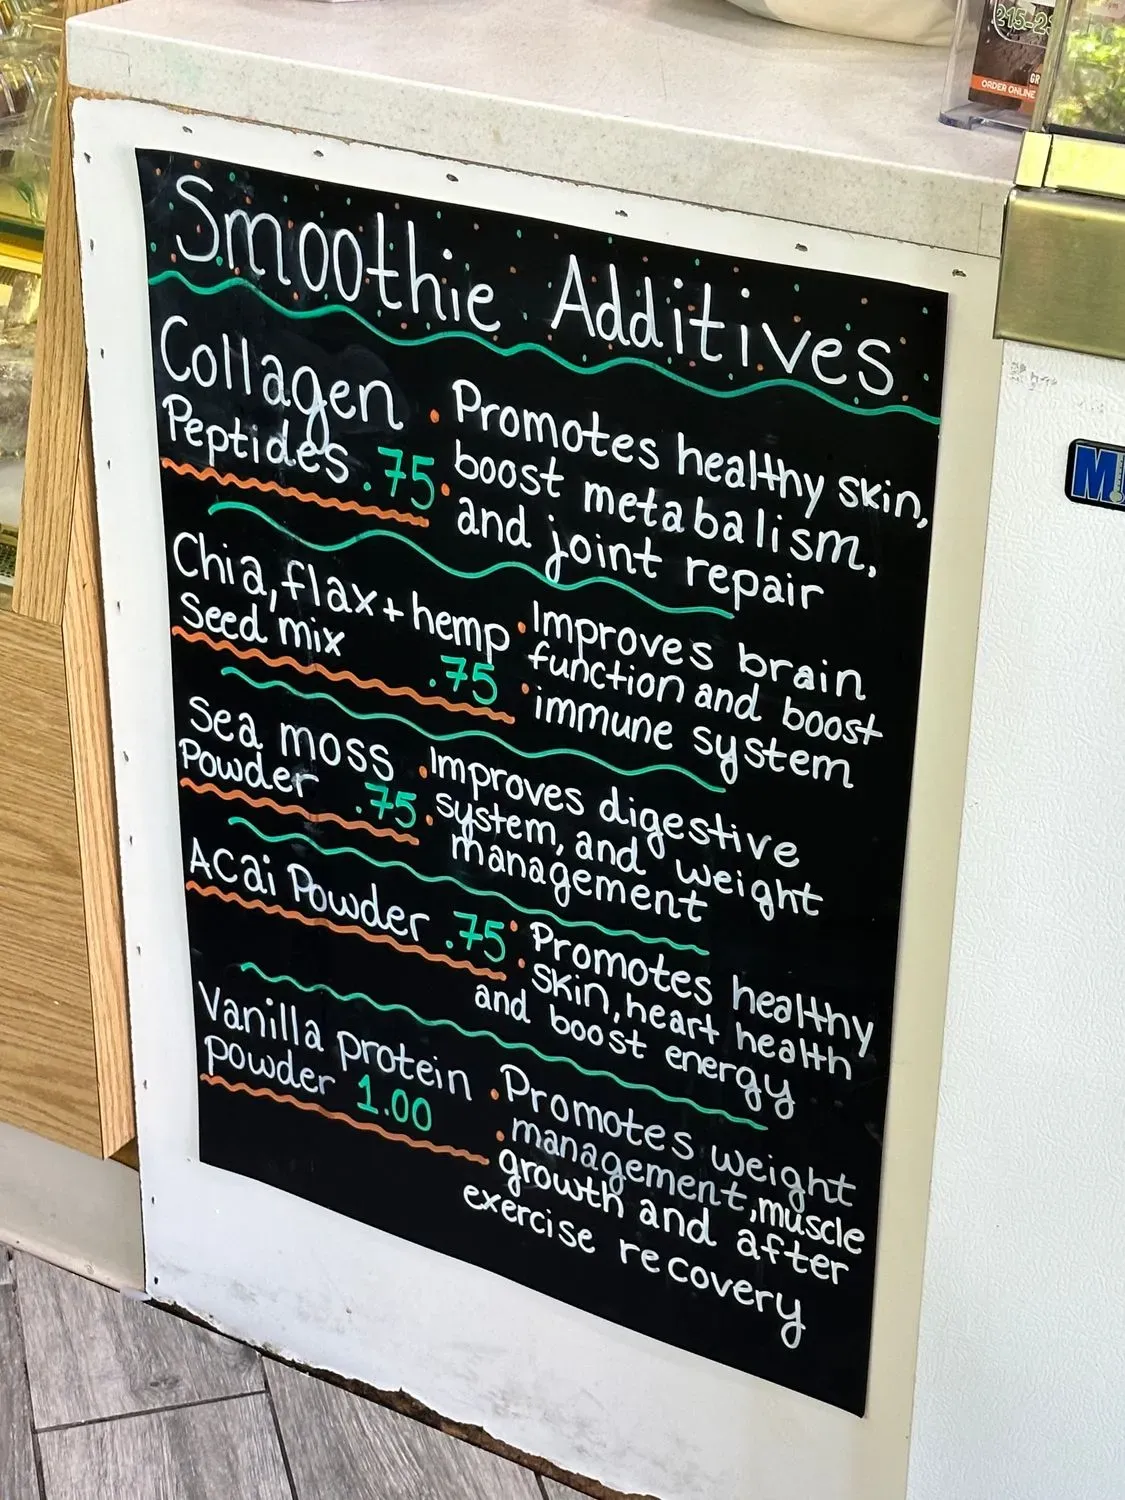 215-2
GR
ORDER ONLINE
Smoothie Additives
Collagen
Peptides .75
• Promotes healthy skin,
• boost metabalism,
and joint repair
Chia, flax + hemp
Seed mix
.75
• Improves brain
function and boost
• immune system
Sea moss
Powder .75
• Improves digestive
• system, and weight
management
Acai Powder .75
• Promotes healthy
• skin, heart health
and boost energy
Vanilla protein
powder 1.00
• Promotes weight
• management, muscle
growth and after
exercise recovery
M